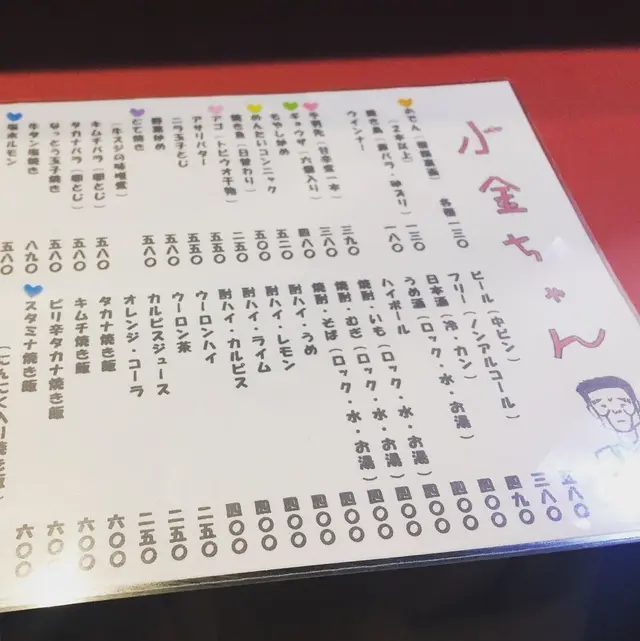 小金ちゃん
おでん
各種 一三〇
(2本以上) 一三〇
一八〇
ウインナー 三九〇
手羽先(甘辛堂一本) 一八〇
ギョウザ(六個入り) 四八〇
もやし炒め 五二〇
めんたいコンニャク 五〇〇
焼き魚(日替わり) 二五〇
アゴ(トビウオ干物) 五五〇
アサリバター 五五〇
ニラ玉子とじ 五八〇
野菜炒め 五八〇
どて焼き 五八〇
(牛スジの味噌煮)
キムチバラ(卵とじ) 五八〇
タカナバラ(卵とじ) 五八〇
なっとう玉子焼き 五八〇
牛タン塩焼き 八九〇
塩ホルモン 五八〇
ビール(中ビン) 五八〇
フリー(ノンアルコール) 三八〇
日本酒(冷・カン) 四九〇
うめ酒(ロック・水・お湯) 四〇〇
ハイボール 四〇〇
焼酎・いも(ロック・水・お湯) 四〇〇
焼酎・むぎ(ロック・水・お湯) 四〇〇
焼酎・そば(ロック・水・お湯) 四〇〇
酎ハイ・うめ 四〇〇
酎ハイ・レモン 四〇〇
酎ハイ・ライム 四〇〇
酎ハイ・カルピス 四〇〇
ウーロンハイ 四〇〇
ウーロン茶 二五〇
カルピスジュース 二五〇
オレンジ・コーラ 二五〇
タカナ焼き飯 六〇〇
キムチ焼き飯 六〇〇
ピリ辛タカナ焼き飯 六〇〇
スタミナ焼き飯 六〇〇
(にんにく入り焼き飯)